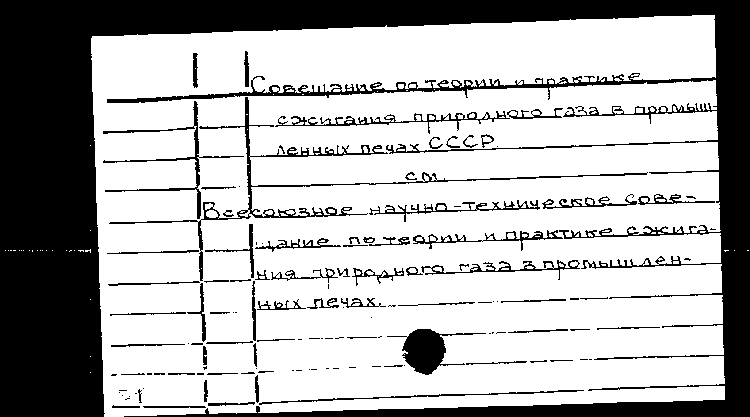 Совещание по теории и практике
сжигания природного газа в промыш-
ленных печах СССР
см.
Всесоюзное научно-техническое сове-
щание по теории и практике сжига-
ния природного газа в промышлен-
ных печах.